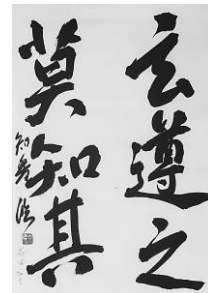 玄遵之
莫知其